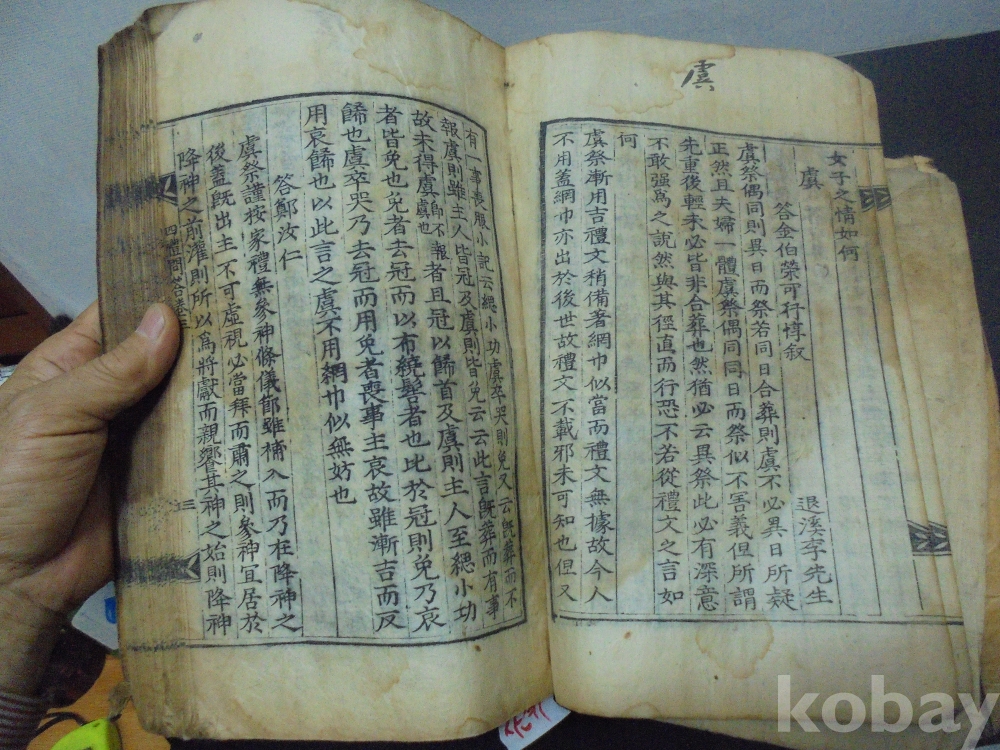 虞
女子之情如何
虞
答金伯榮可行惇叙 退溪李先生
虞祭偶同則異日而祭若同日合葬則虞不必異日所疑
正然且夫婦一體虞祭偶同同日而祭似不害義但所謂
先重後輕未必皆非合葬也然猶必云異祭此必有深意
不敢强爲之說然與其徑直而行恐不若從禮文之言如
何
虞祭漸用吉禮文稍備著網巾似當而禮文無據故今人
不用盖網巾亦出於後世故禮文不載邪未可知也但又
有一事喪服小記云緦小功虞卒哭則免又云旣葬而不
報虞則雖主人皆冠及虞則皆免云云此言旣葬而有事
故未得虞卽不報虞也者且冠以餙首及虞則主人至緦小功
者皆免也免者去冠而以布繞髻者也比於冠則免乃哀
餙也虞卒哭乃去冠而用免者喪事主哀故雖漸吉而反
用哀餙也以此言之虞不用網巾似無妨也
答鄭汝仁
虞祭謹按家禮無參神條儀節雖補入而乃在降神之
後盖旣出主不可虛視必當拜而肅之則參神宜居於
降神之前灌則所以爲將獻而親饗其神之始則降神
四禮問答卷三 三
kobay